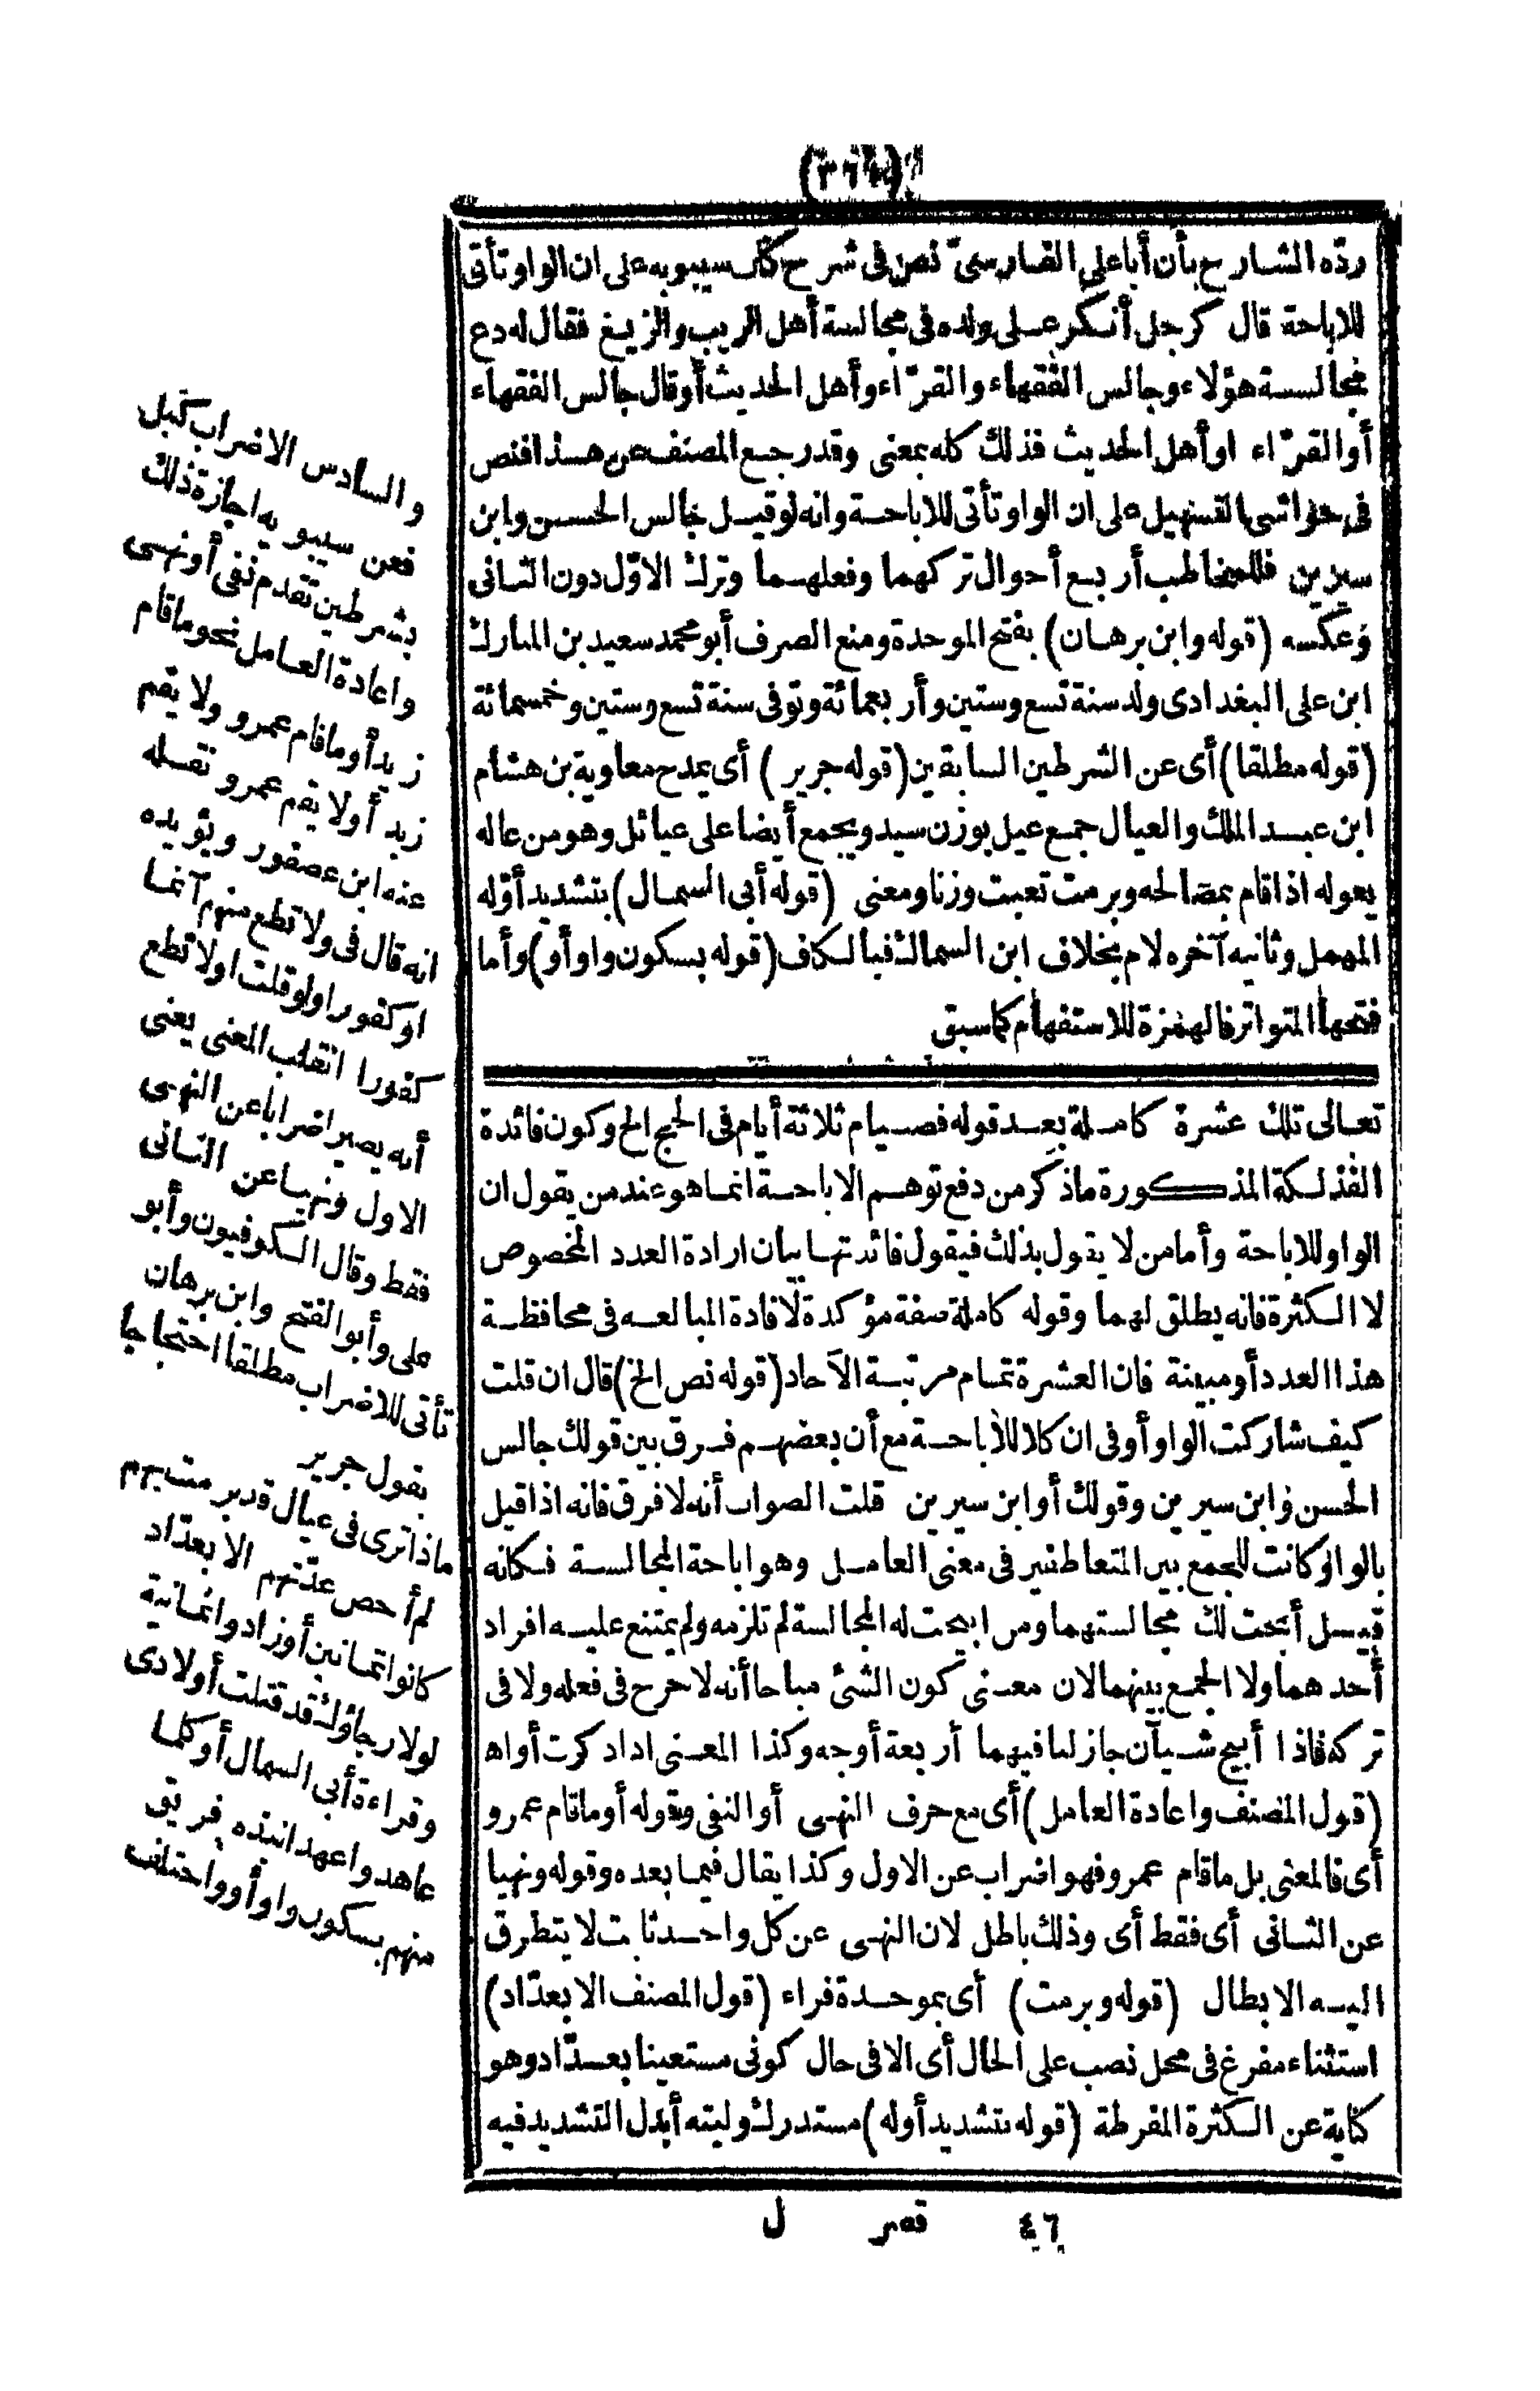 ردّه الشارح بأن أبا على الفارسىّ نص فى شرح كتاب سيبويه على ان الواو تأتى
للاباحة قال كرجل أنكر على ولده فى مجالسة أهل الريب والزيغ فقال له دع
مجالسة هؤلاء وجالس الفقهاء والقرّاء وأهل الحديث أو قال جالس الفقهاء
أو القرّاء او أهل الحديث فذلك كله بمعنى وقد رجع المصنف عن هذا فنص
فى حواشى التسهيل على ان الواو تأتى للاباحة وانه لو قيل جالس الحسن وابن
سيرين فللمخاطب أربع أحوال تركهما وفعلهما وترك الاوّل دون الثانى
وعكسه (قوله وابن برهان) بفتح الموحدة ومنع الصرف أبو محمد سعيد بن المبارك
ابن على البغدادى ولد سنة تسع وستين وأربعمائة وتوفى سنة تسع وستين وخمسمائة
(قوله مطلقا) أى عن الشرطين السابقين (قوله جرير) أى يمدح معاوية بن هشام
ابن عبد الملك والعيال جمع عيل بوزن سيد ويجمع أيضا على عيائل وهو من عاله
يعوله اذا قام بمصالحه وبرمت تعبت وزنا ومعنى (قوله أبى السمال) بتشديد أوّله
المهمل وثانيه آخره لام بخلاف ابن السماك فبالكاف (قوله بسكون واو أو) وأما
فتحها المتواتر فالهمزة للاستفهام كما سبق
تعالى تلك عشرة كاملة بعد قوله فصيام ثلاثة أيام فى الحج الخ وكون فائدة
الفذلكة المذكورة ماذكر من دفع توهم الاباحة انما هو عند من يقول ان
الواو للاباحة وأما من لا يقول بذلك فيقول فائدتها بيان ارادة العدد المخصوص
لا الكثرة فانه يطلق لهما وقوله كاملة صفة مؤكدة لافادة المبالغة فى محافظة
هذا العدد أو مبينة فان العشرة تمام مرتبة الآحاد (قوله نص الخ) قال ان قلت
كيف شاركت الواو أو فى ان كلا للاباحة مع أن بعضهم فرق بين قولك جالس
الحسن وابن سيرين وقولك أو ابن سيرين قلت الصواب أنه لا فرق فانه اذا قيل
بالواو كانت للجمع بين المتعاطفين فى معنى العامل وهو اباحة المجالسة فكانه
قيل أبحت لك مجالستهما ومن ابيحت له المجالسة لم تلزمه ولم يمتنع عليه افراد
أحدهما ولا الجمع بينهما لان معنى كون الشئ مباحا أنه لا حرج فى فعله ولا فى
تركه فاذا أبيح شيآن جاز لنا فيهما أربعة أوجه وكذا المعنى اذا ذكرت أو اه
(قول المصنف واعادة العامل) أى مع حرف النهى أو النفى وقوله أو ما قام عمرو
أى فالمعنى بل ما قام عمرو فهو اضراب عن الاول وكذا يقال فيما بعده وقوله ونهيا
عن الثانى أى فقط أى وذلك باطل لان النهى عن كل واحد ثابت لا يتطرق
اليه الابطال (قوله وبرمت) أى بموحدة فراء (قول المصنف الا بعدّاد)
استثناء مفرغ فى محل نصب على الحال أى الا فى حال كونى مستعينا بعدّاد وهو
كناية عن الكثرة المفرطة (قوله بتشديد أوله) مستدرك وليته أبدل التشديد فيه
والسادس الاضراب كبل
فعن سيبويه اجازة ذلك
بشرطين تقدم نفى أو نهى
واعادة العامل نحو ما قام
زيد أو ما قام عمرو ولا يقم
زيد أو لا يقم عمرو نقله
عنه ابن عصفور ويؤيده
انه قال فى ولا تطع منهم آثما
او كفورا ولو قلت او لا تطع
كفورا انقلب المعنى يعنى
أنه يصير اضرابا عن النهى
الاول ونهيا عن الثانى
فقط وقال الكوفيون وأبو
على وأبو الفتح وابن برهان
تأتى للاضراب مطلقا احتجاجا
بقول جرير
ماذا ترى فى عيال قد برمت بهم
لم أحص عدّتهم الا بعدّاد
كانوا ثمانين أو زادوا ثمانية
لولا رجاؤك قد قتلت أولادى
وقراءة أبى السمال أو كلما
عاهدوا عهدا نبذه فريق
منهم بسكون واو أو واختلف
٤٦ قصر ل